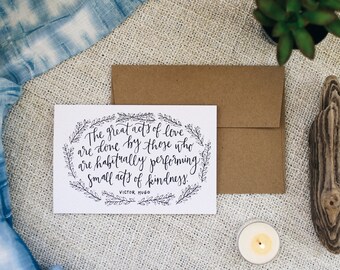 The great acts of love
are done by those who
are habitually performing
small acts of kindness.
VICTOR HUGO